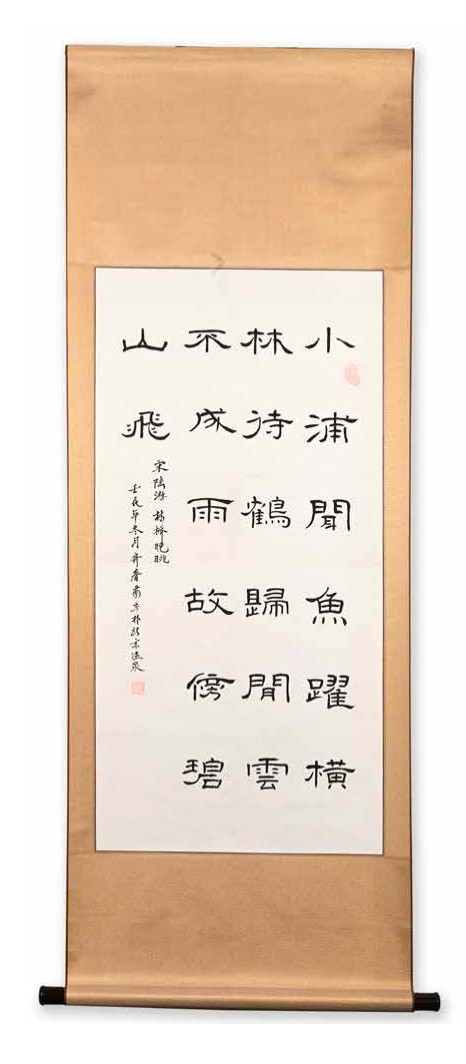 小浦聞魚躍横
林待鶴歸閒雲
不成雨故傍碧
山飛
宋陸游 柳橋晚眺
壬辰年冬月齊